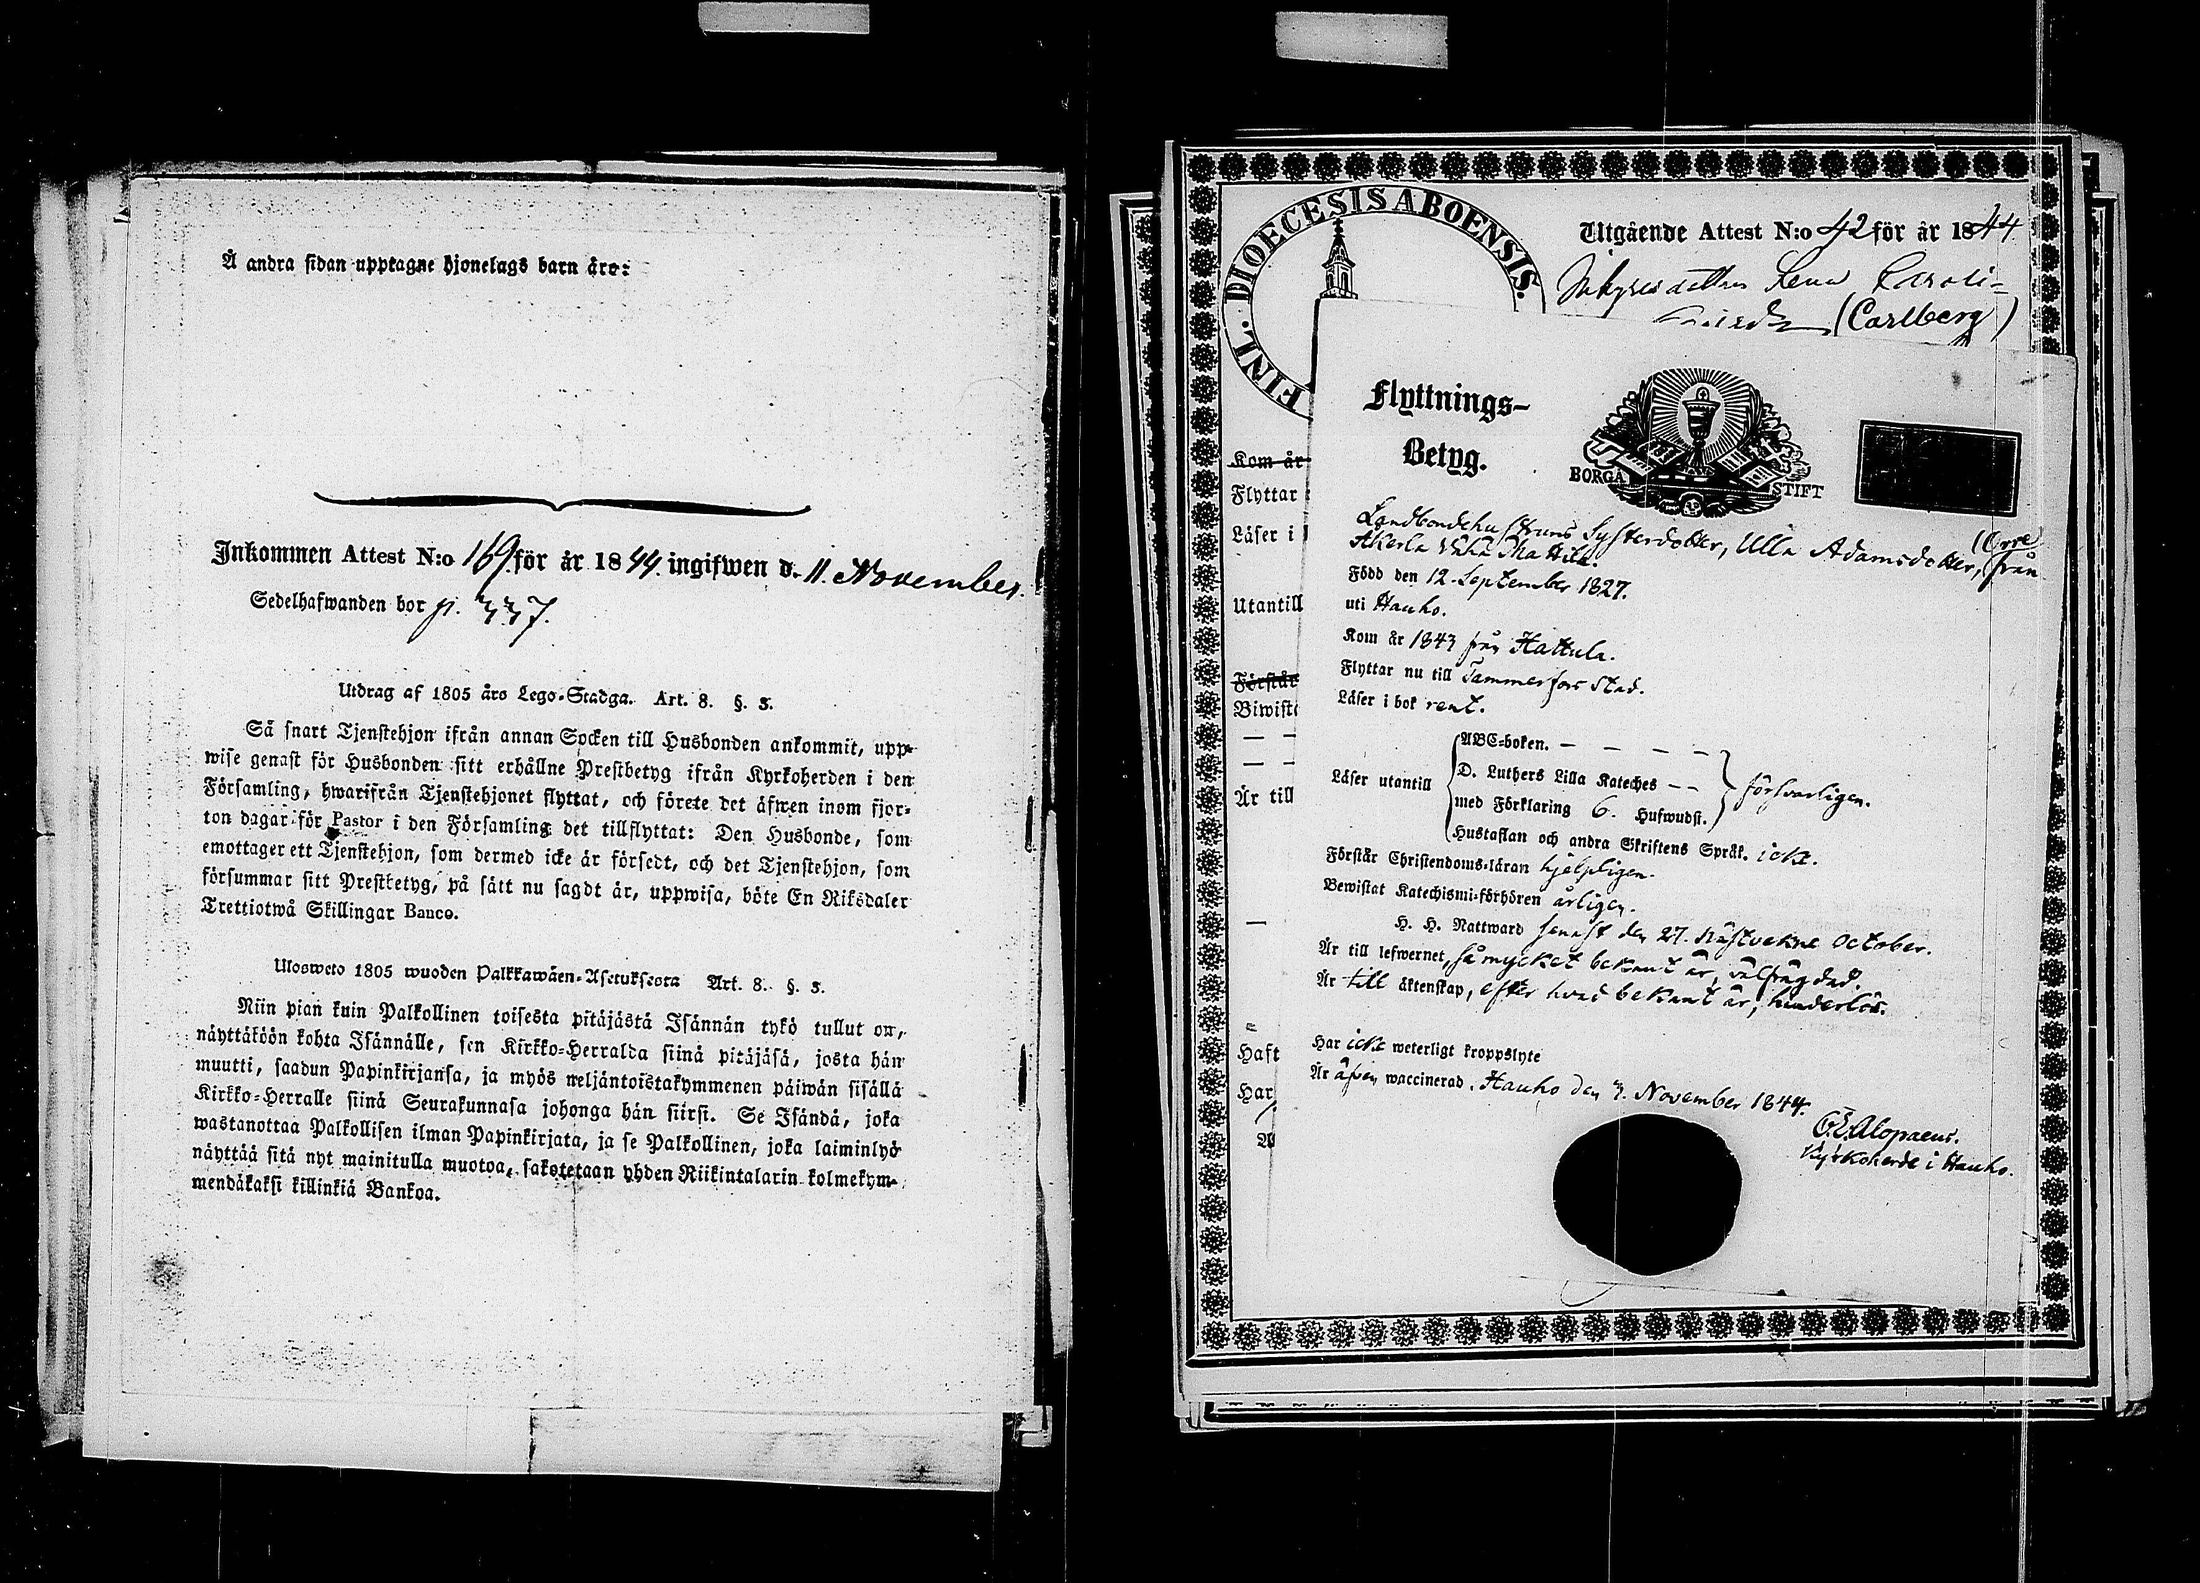 Å andra sidan upptagne hjonelags barn äro:
Inkommen Attest N:o 169. för år 1844. ingifwen d. 11. November.
Sedelhafwanden bor p. 337.
Utdrag af 1805 års Lego-Stadga. Art. 8. §. 3.
Så snart Tjenstehjon ifrån annan Socken till Husbonden ankommit, upp-
wise genast för Husbonden sitt erhållne Prestbetyg ifrån Kyrkoherden i den
Församling, hwarifrån Tjenstehjonet flyttat, och förete det äfwen inom fjor-
ton dagar för Pastor i den Församling det tillflyttat: Den Husbonde, som
emottager ett Tjenstehjon, som dermed icke är försedt, och det Tjenstehjon, som
försummar sitt Prestbetyg, på sätt nu sagdt är, uppwisa, böte En Riksdaler
Trettiotwå Skillingar Banco.
Ulosweto 1805 wuoden Palkkawäen-Asetuksesta Art. 8. §. 3.
Niin pian kuin Palkollinen toisesta pitäjästä Isännän tykö tullut on,
näyttäköön kohta Isännälle, sen Kirkko-Herralda siinä pitäjäsä, josta hän
muutti, saadun Papinkirjansa, ja myös neljäntoistakymmenen päiwän sisällä
Kirkko-Herralle siinä Seurakunnasa johonga hän siirsi. Se Isändä, joka
wastanottaa Palkollisen ilman Papinkirjata, ja se Palkollinen, joka laiminlyö
näyttää sitä nyt mainitulla muotoa, sakotetaan yhden Riikintalarin kolmekym-
mendäkaksi killinkiä Bankoa.
FINL. DIOECESIS ABOENSIS.
Utgående Attest N:o 42 för år 1844.
Lena Caroli-
(Carlberg)
Kom år
Flyttar
Läser i
Utantill
Förstår
Är till
Haft
Har
Flyttnings-
Betyg.
BORGÅ STIFT
Landbondehustruns Systerdotter, Ulla Adamsdotter, (Orre) från
Akerla Vähä Mattila.
Född den 12. September 1827.
uti Hauho.
Kom år 1843 från Hattula.
Flyttar nu till Tammerfors Stad.
Läser i bok rent.
Läser utantill
ABC-boken. — — — —
D. Luthers Lilla Kateches — —
med Förklaring 6. Hufwudst.
försvarligen.
Hustaflan och andra Skriftens Språk. icke.
Förstår Christendoms-läran hjelpligen.
Bewistat Katechismi-förhören årligen.
H. H. Nattward senast den 27. nästvekne October.
Är till lefwernet, så mycket bekant är, välfrägdad.
Är till äktenskap, efter hvad bekant är, hinderlös.
Har icke weterligt kroppslyte
Är äfven waccinerad. Hauho den 7. November 1844.
Alopaeus.
Kyrkoherde i Hauho.